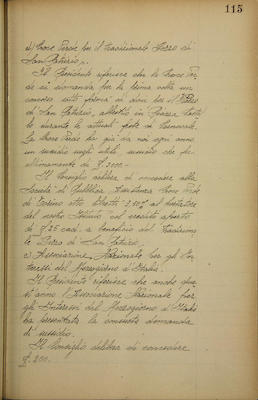 115
di Croce Verde per il tradizionale Torro di
San Patrizio".
Il Presidente riferisce che la Croce Ver-
de ci domanda per la prima volta un
concorso sotto forma di doni per il
di San Patrizio, allestito in Piazza
le durante le attuali feste di Carnevale.
La Croce Verde ha già da noi ogni anno
un sussidio negli utili, sussidio che
£ 200.=
Il Consiglio delibera di concedere alla
Società di Pubblica Assistenza Croce Verde
di Torino otto 3.50% al portatore
del nostro Istituto, col credito aperto
di £ 25 cad. a beneficio del tradizionale
di San Patrizio.
Associazione Nazionale per gli In-
teressi del Mezzogiorno d'Italia.
Il Presidente riferisce che anche que-
st'anno l'Associazione Nazionale per
gli Interessi del Mezzogiorno d'Italia
ha presentata la consueta domanda
di sussidio.
Il Consiglio delibera di concedere
£ 200.=